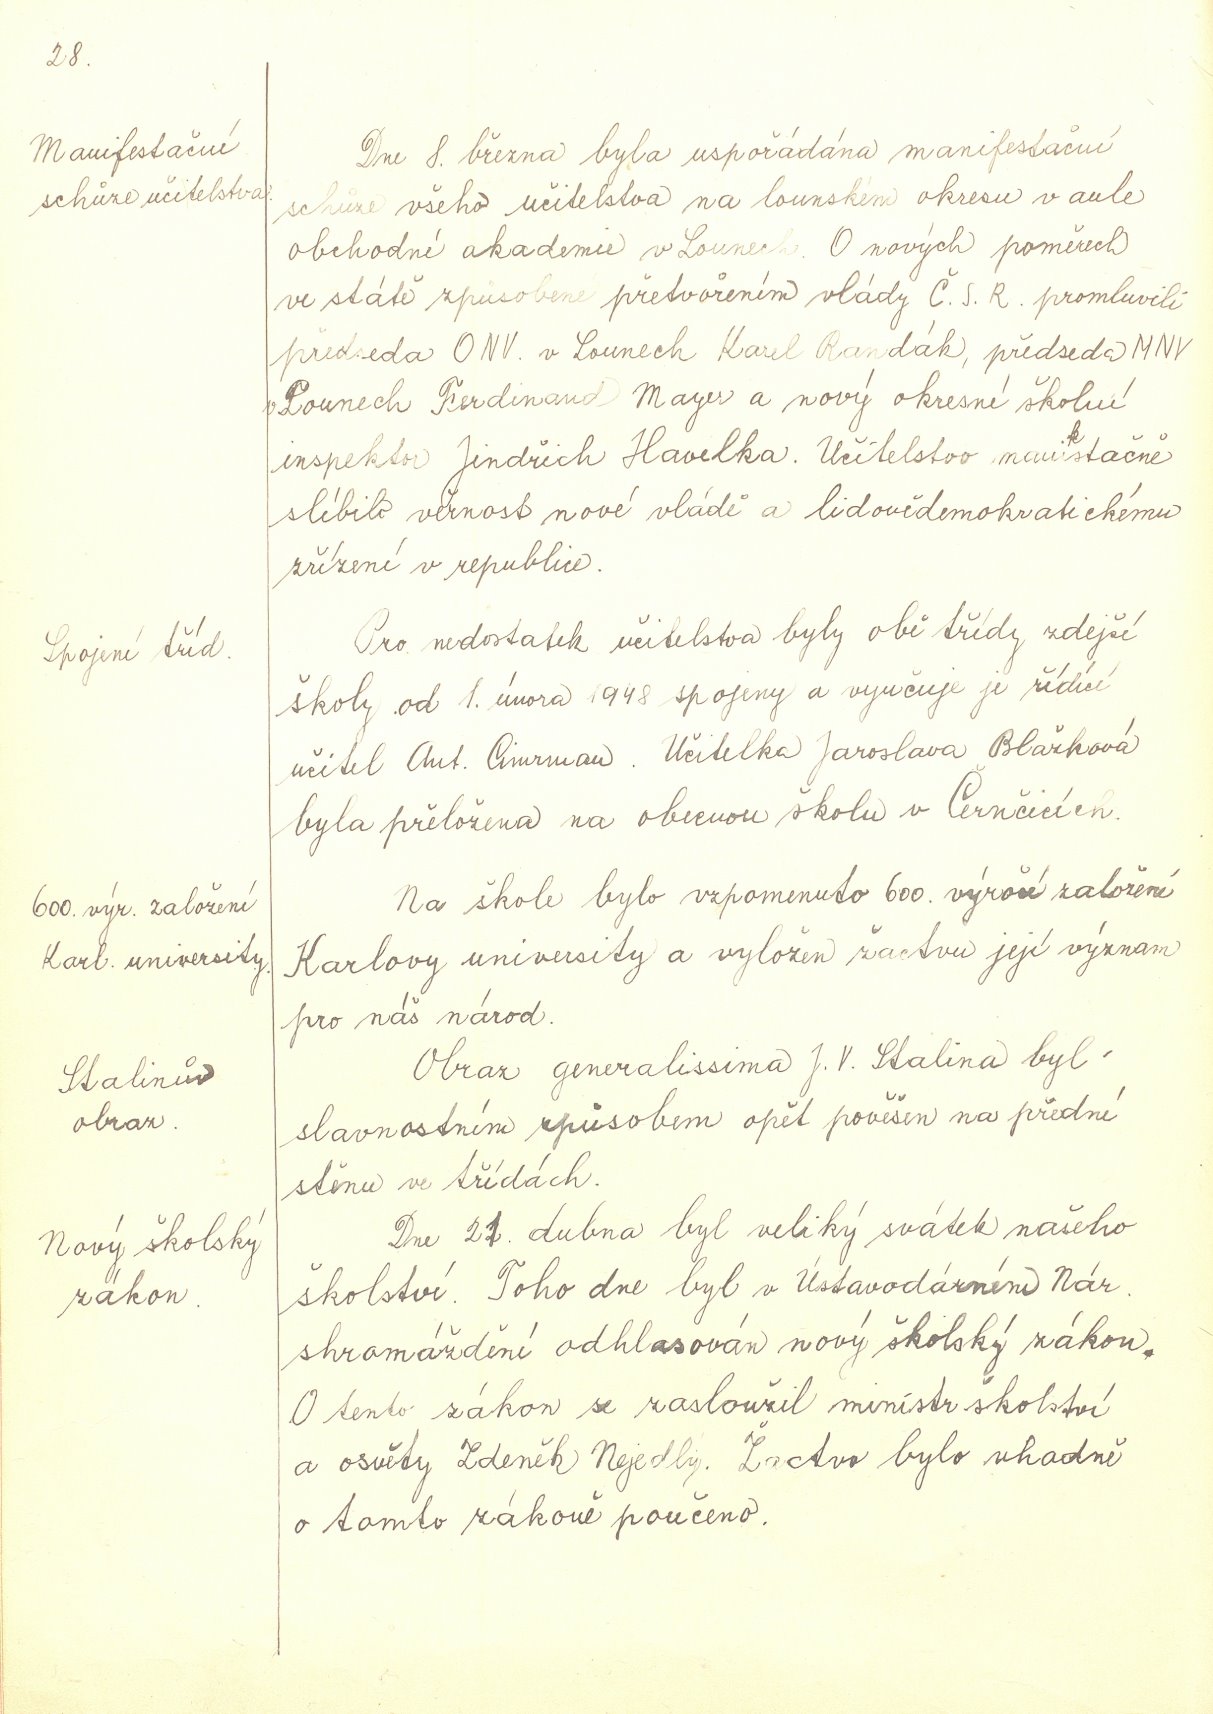 28.
Manifestační
schůze učitelstva.
Dne 8. března byla uspořádána manifestační
schůze všeho učitelstva na lounském okresu v aule
obchodné akademie v Lounech. O nových poměrech
ve státě způsobené přetvořením vlády Č. S. R. promluvili
předseda ONV. v Lounech Karel Randák, předseda MNV
v Lounech Ferdinand Mayer a nový okresné školní
inspektor Jindřich Havelka. Učitelstvo
slíbilo věrnost nové vládě a lidovědemokratickému
zřízení v republice.
Spojení tříd.
Pro nedostatek učitelstva byly obě třídy zdejší
školy od 1. února 1948 spojeny a vyučuje je řídící
učitel Ant. Cimrman. Učitelka Jaroslava Blažková
byla přeložena na obecnou školu v Černčicích.
600. výr. založení
Karl. university.
Na škole bylo vzpomenuto 600. výročí založení
Karlovy university a vyložen žactvu její význam
pro náš národ.
Stalinův
obraz.
Obraz generalissima J. V. Stalina byl
slavnostním způsobem opět pověšen na přední
stěnu ve třídách.
Nový školský
zákon.
Dne 21. dubna byl veliký svátek našeho
školství. Toho dne byl v Ústavodárném Nár.
shromáždění odhlasován nový školský zákon.
O tento zákon se zasloužil ministr školství
a osvěty Zdeněk Nejedlý. Žactvo bylo vhodně
o tomto zákoně poučeno.